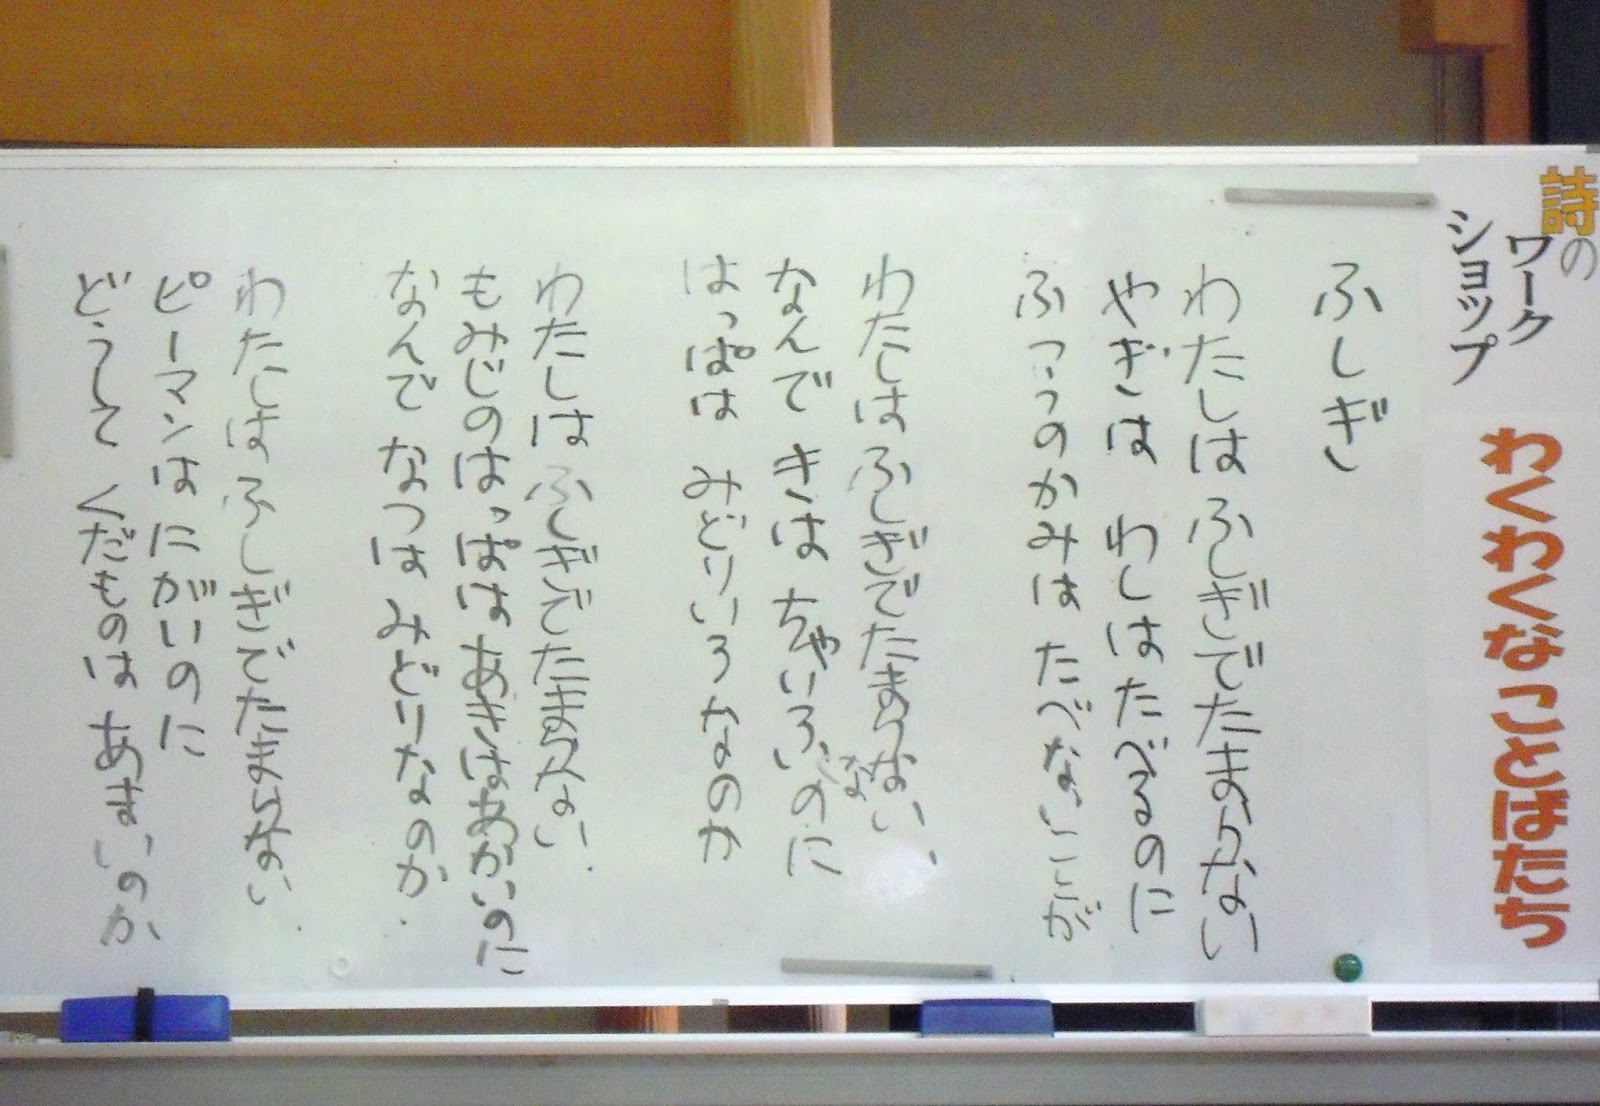 詩の
ワーク
ショップ
わくわくなことばたち
ふしぎ
わたしは ふしぎでたまらない
やぎは わしはたべるのに
ふつうのかみは たべないことが
わたしは ふしぎでたまらない、
なんで きは ちゃいろ なのに
はっぱは みどりいろなのか
わたしは ふしぎでたまらない.
もみじのはっぱは あきはあかいのに
なんで なつは みどりなのか.
わたしは ふしぎでたまらない.
ピーマンは にがいのに
どうして くだものは あまいのか